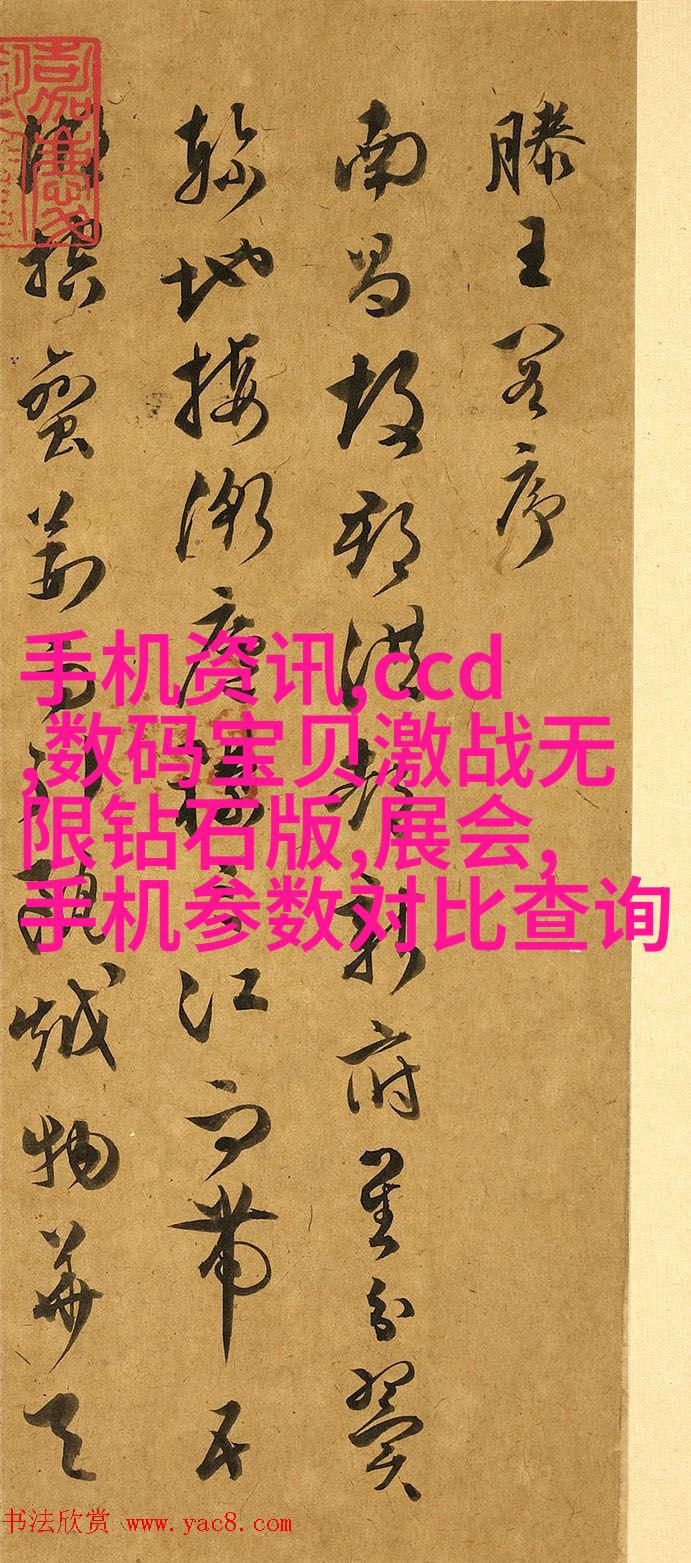 滕王閣序
南昌故郡洪都新府星分翼
軫地接衡廬襟三江而帶五
湖控蠻荊而引甌越物華天
手机资讯,ccd
,数码宝贝激战无
限钻石版,展会,
手机参数对比查询
书法欣赏 www.yac8.com